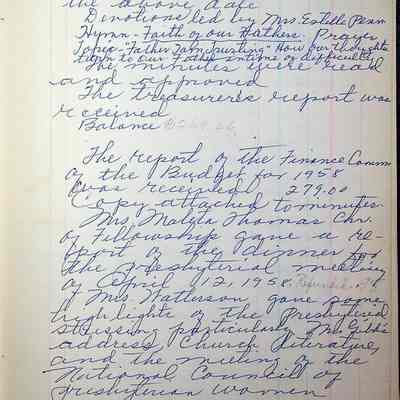 the above date
Devotions led by Mrs Estelle Penn
Hymn - Faith of our Fathers. Prayer
Topic - Father I am Trusting - How our thoughts
turn to our Father in time of difficulty
The minutes were read
and approved
The treasurer's report was
received
Balance
The report of the Finance Comm
of the Budget for 1958
was received 279.00
Copy attached to minutes.
Mrs. Maleta Thomas Chr.
of Fellowship gave a re-
port of the dinner for
the Presbyterial meeting
of April 12, 1958.
Mrs Watterson gave some
highlights of the Presbyterial
stressing particularly Mrs.
address, Church literature,
and the meeting of the
National Council of
Presbyterian Women